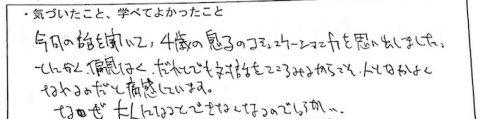 ・気づいたこと、学べてよかったこと
今旬の話を聞いて、4歳の息子のコミュニケーション力を思い出しました。
とにかく偏見なく、だれとでも対話をこころみるからこそ、人となかよく
なれるのだと痛感しています。
なぜ大人になってできなくなるのでしょうか…